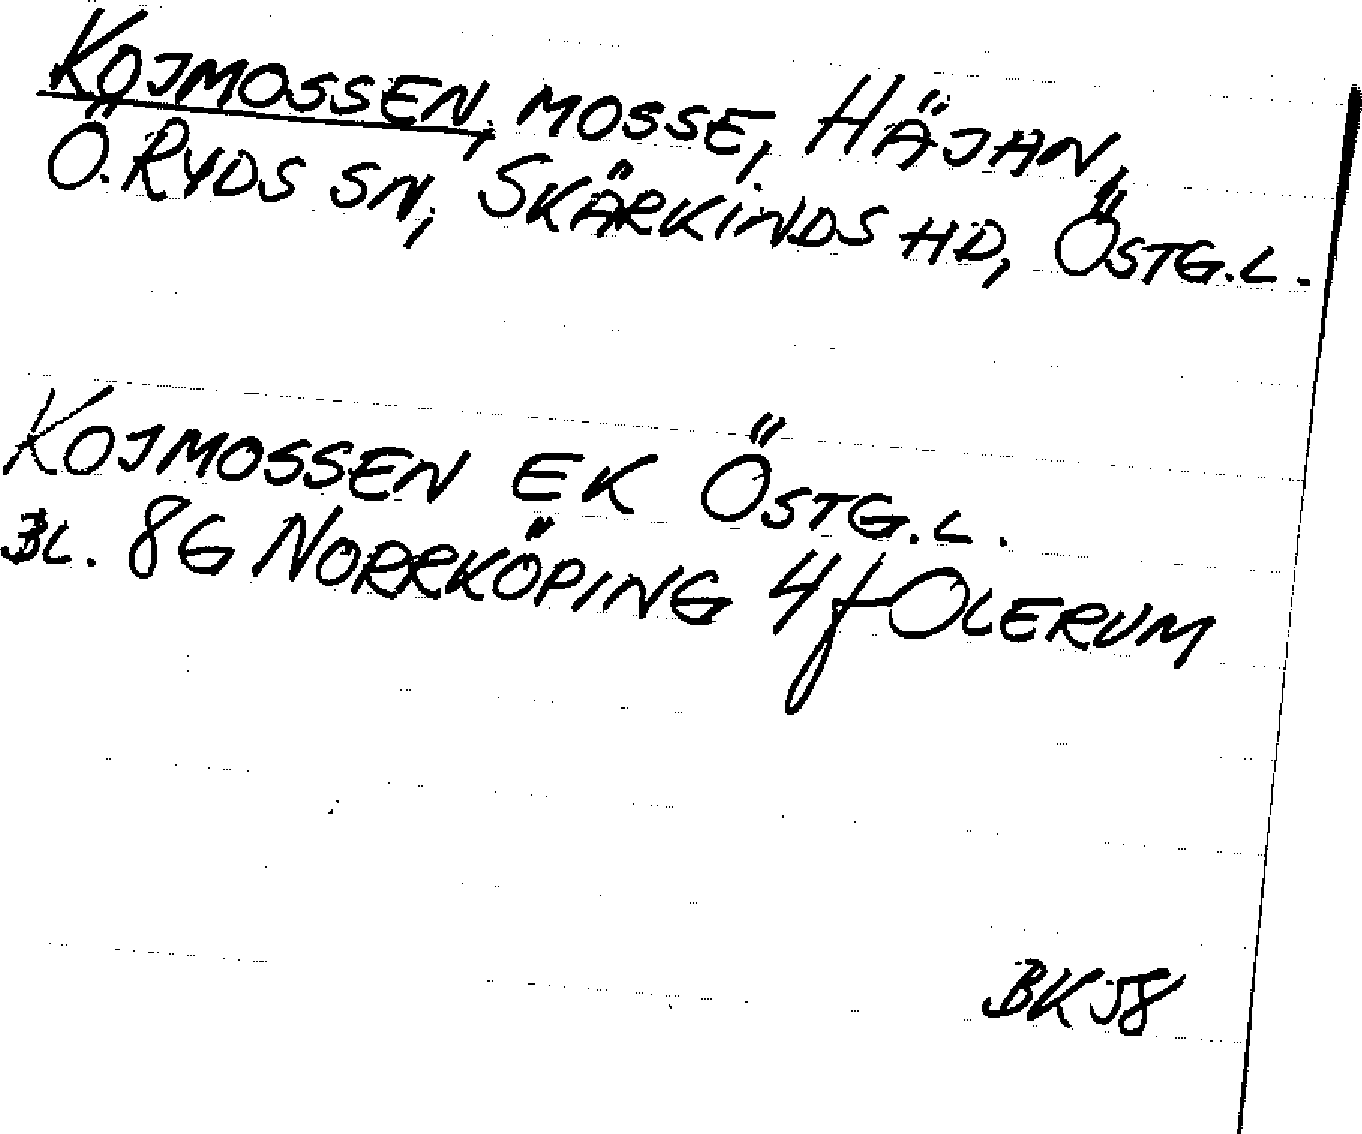 KOJMOSSEN, MOSSE, HÄJAN,
Ö. RYDS SN, SKÄRKINDS HD, ÖSTG.L.
KOJMOSSEN EK ÖSTG.L.
BL. 8G NORRKÖPING 4f OLERUM
BK 58